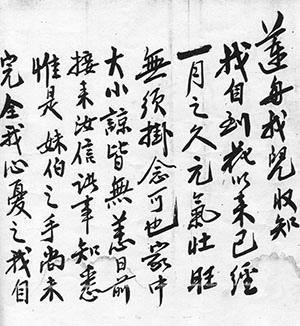 蓮舟我兒收知
我自到花以來已經
一月之久元氣壯旺
無須掛念可也家中
大小諒皆無恙日前
接來汝信訴事知悉
惟是妹伯之手尚未
完全我心憂之我自